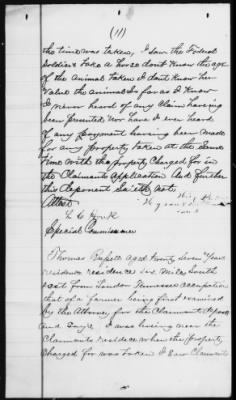 (11)
the time was taken, I saw the Federal
Soldiers take a horse dont know the age
of the animal taken I dont know her
value the animal In far as I know
I never heard of any Claim having
been presented Nor have I ever heard
of any payment having been made
for any property taken at the same
time with the property Charged for in
the Claimants application And further
this deponent Saith not.
Attest
his
mark
Special Commissioner
Thomas Russell aged twenty seven years
residence residence six Miles South
east from Loudon Tennessee occupation
that of a farmer being first examined
by the Attorney for the Claimant deposes
and says, I was living near the
Claimants residence when the property
Charged for was taken I saw Claimants